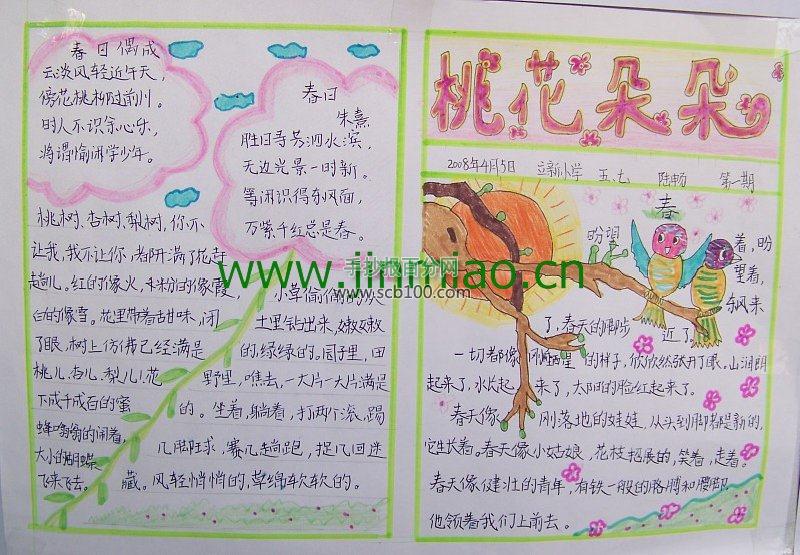 春日偶成
云淡风轻近午天，
傍花随柳过前川。
时人不识余心乐，
将谓偷闲学少年。
春日
朱熹
胜日寻芳泗水滨，
无边光景一时新。
等闲识得东风面，
万紫千红总是春。
桃树、杏树、梨树，你不
让我，我不让你，都开满了花赶
趟儿。红的像火，粉的像霞，
白的像雪。花里带着甜味，闭
了眼，树上仿佛已经满是
桃儿、杏儿、梨儿！花
下成千成百的蜜
蜂嗡嗡的闹着，
大小的蝴蝶
飞来飞去。
小草偷偷的从
土里钻出来，嫩嫩
的，绿绿的。园子里，田
野里，瞧去，一大片一大片满是
的。坐着，躺着，打两个滚，踢
几脚球，赛几趟跑，捉几回迷
藏。风轻悄悄的，草绵软软的。
桃花朵朵
2008年4月5日 立新小学 五、七 陆畅 第一期
春
盼望着，盼
望着，
东风来
了，春天的脚步近了。
一切都像刚睡醒的样子，欣欣然张开了眼。山润朗
起来了，水长起来了，太阳的脸红起来了。
春天像刚落地的娃娃，从头到脚都是新的，
它生长着。春天像小姑娘，花枝招展的，笑着，走着。
春天像健壮的青年，有铁一般的胳膊和腰脚，
他领着我们上前去。
www.jinliniao.cn
手抄报百分网
www.scb100.com